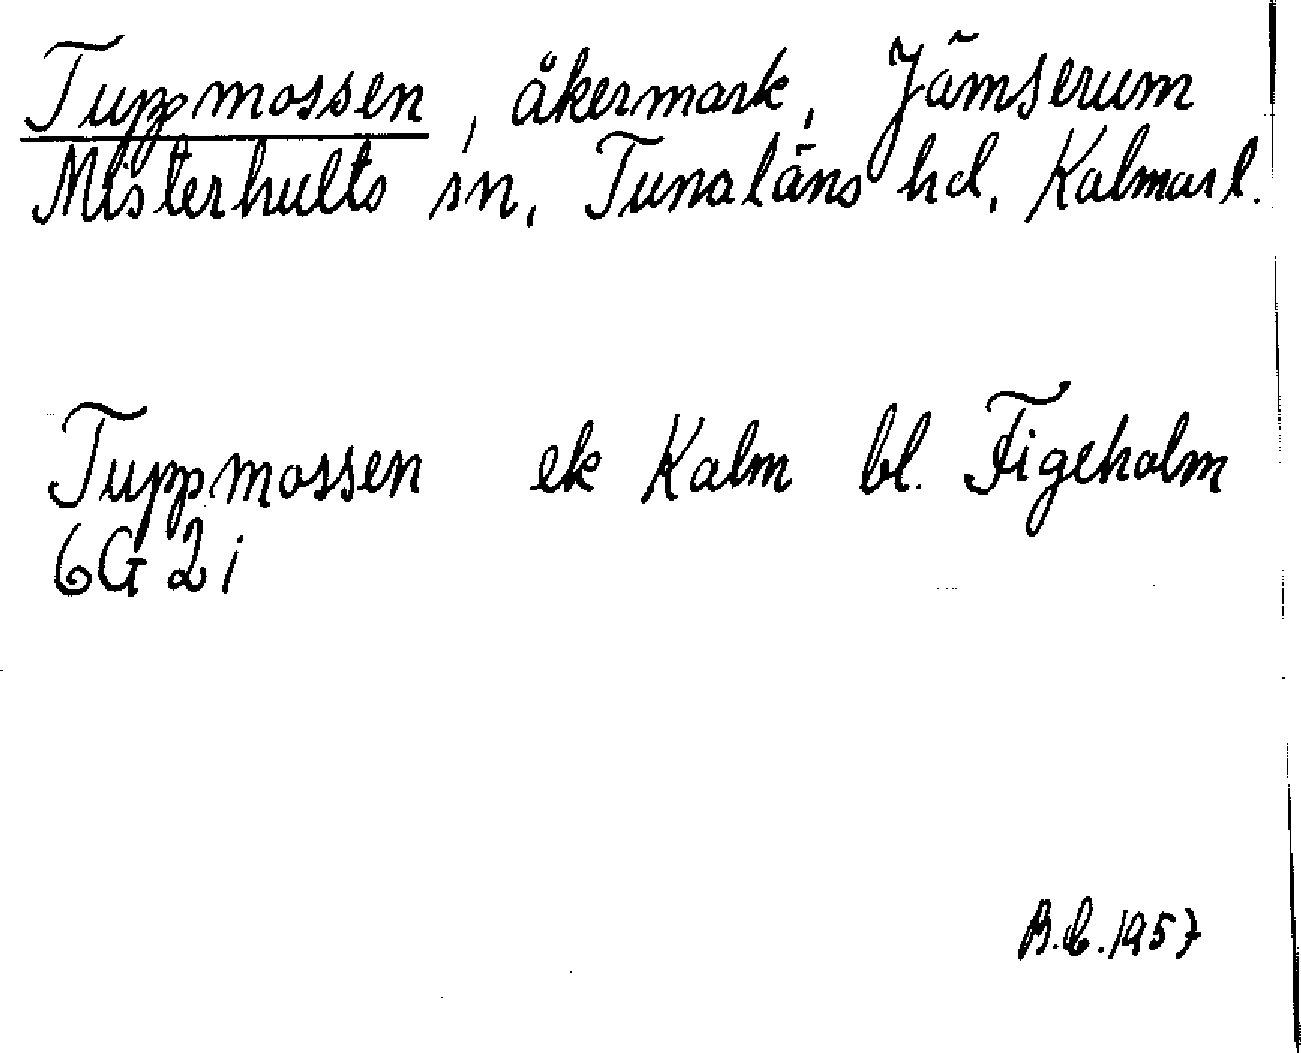 Tuppmossen, åkermark, Jämserum
Misterhults sn, Tunaläns hd, Kalmar l.
Tuppmossen ek Kalm bl. Figeholm
6G 2i
B.C. 1957